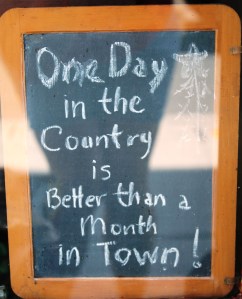 One Day
in the
Country
is
Better than a
Month
in Town!